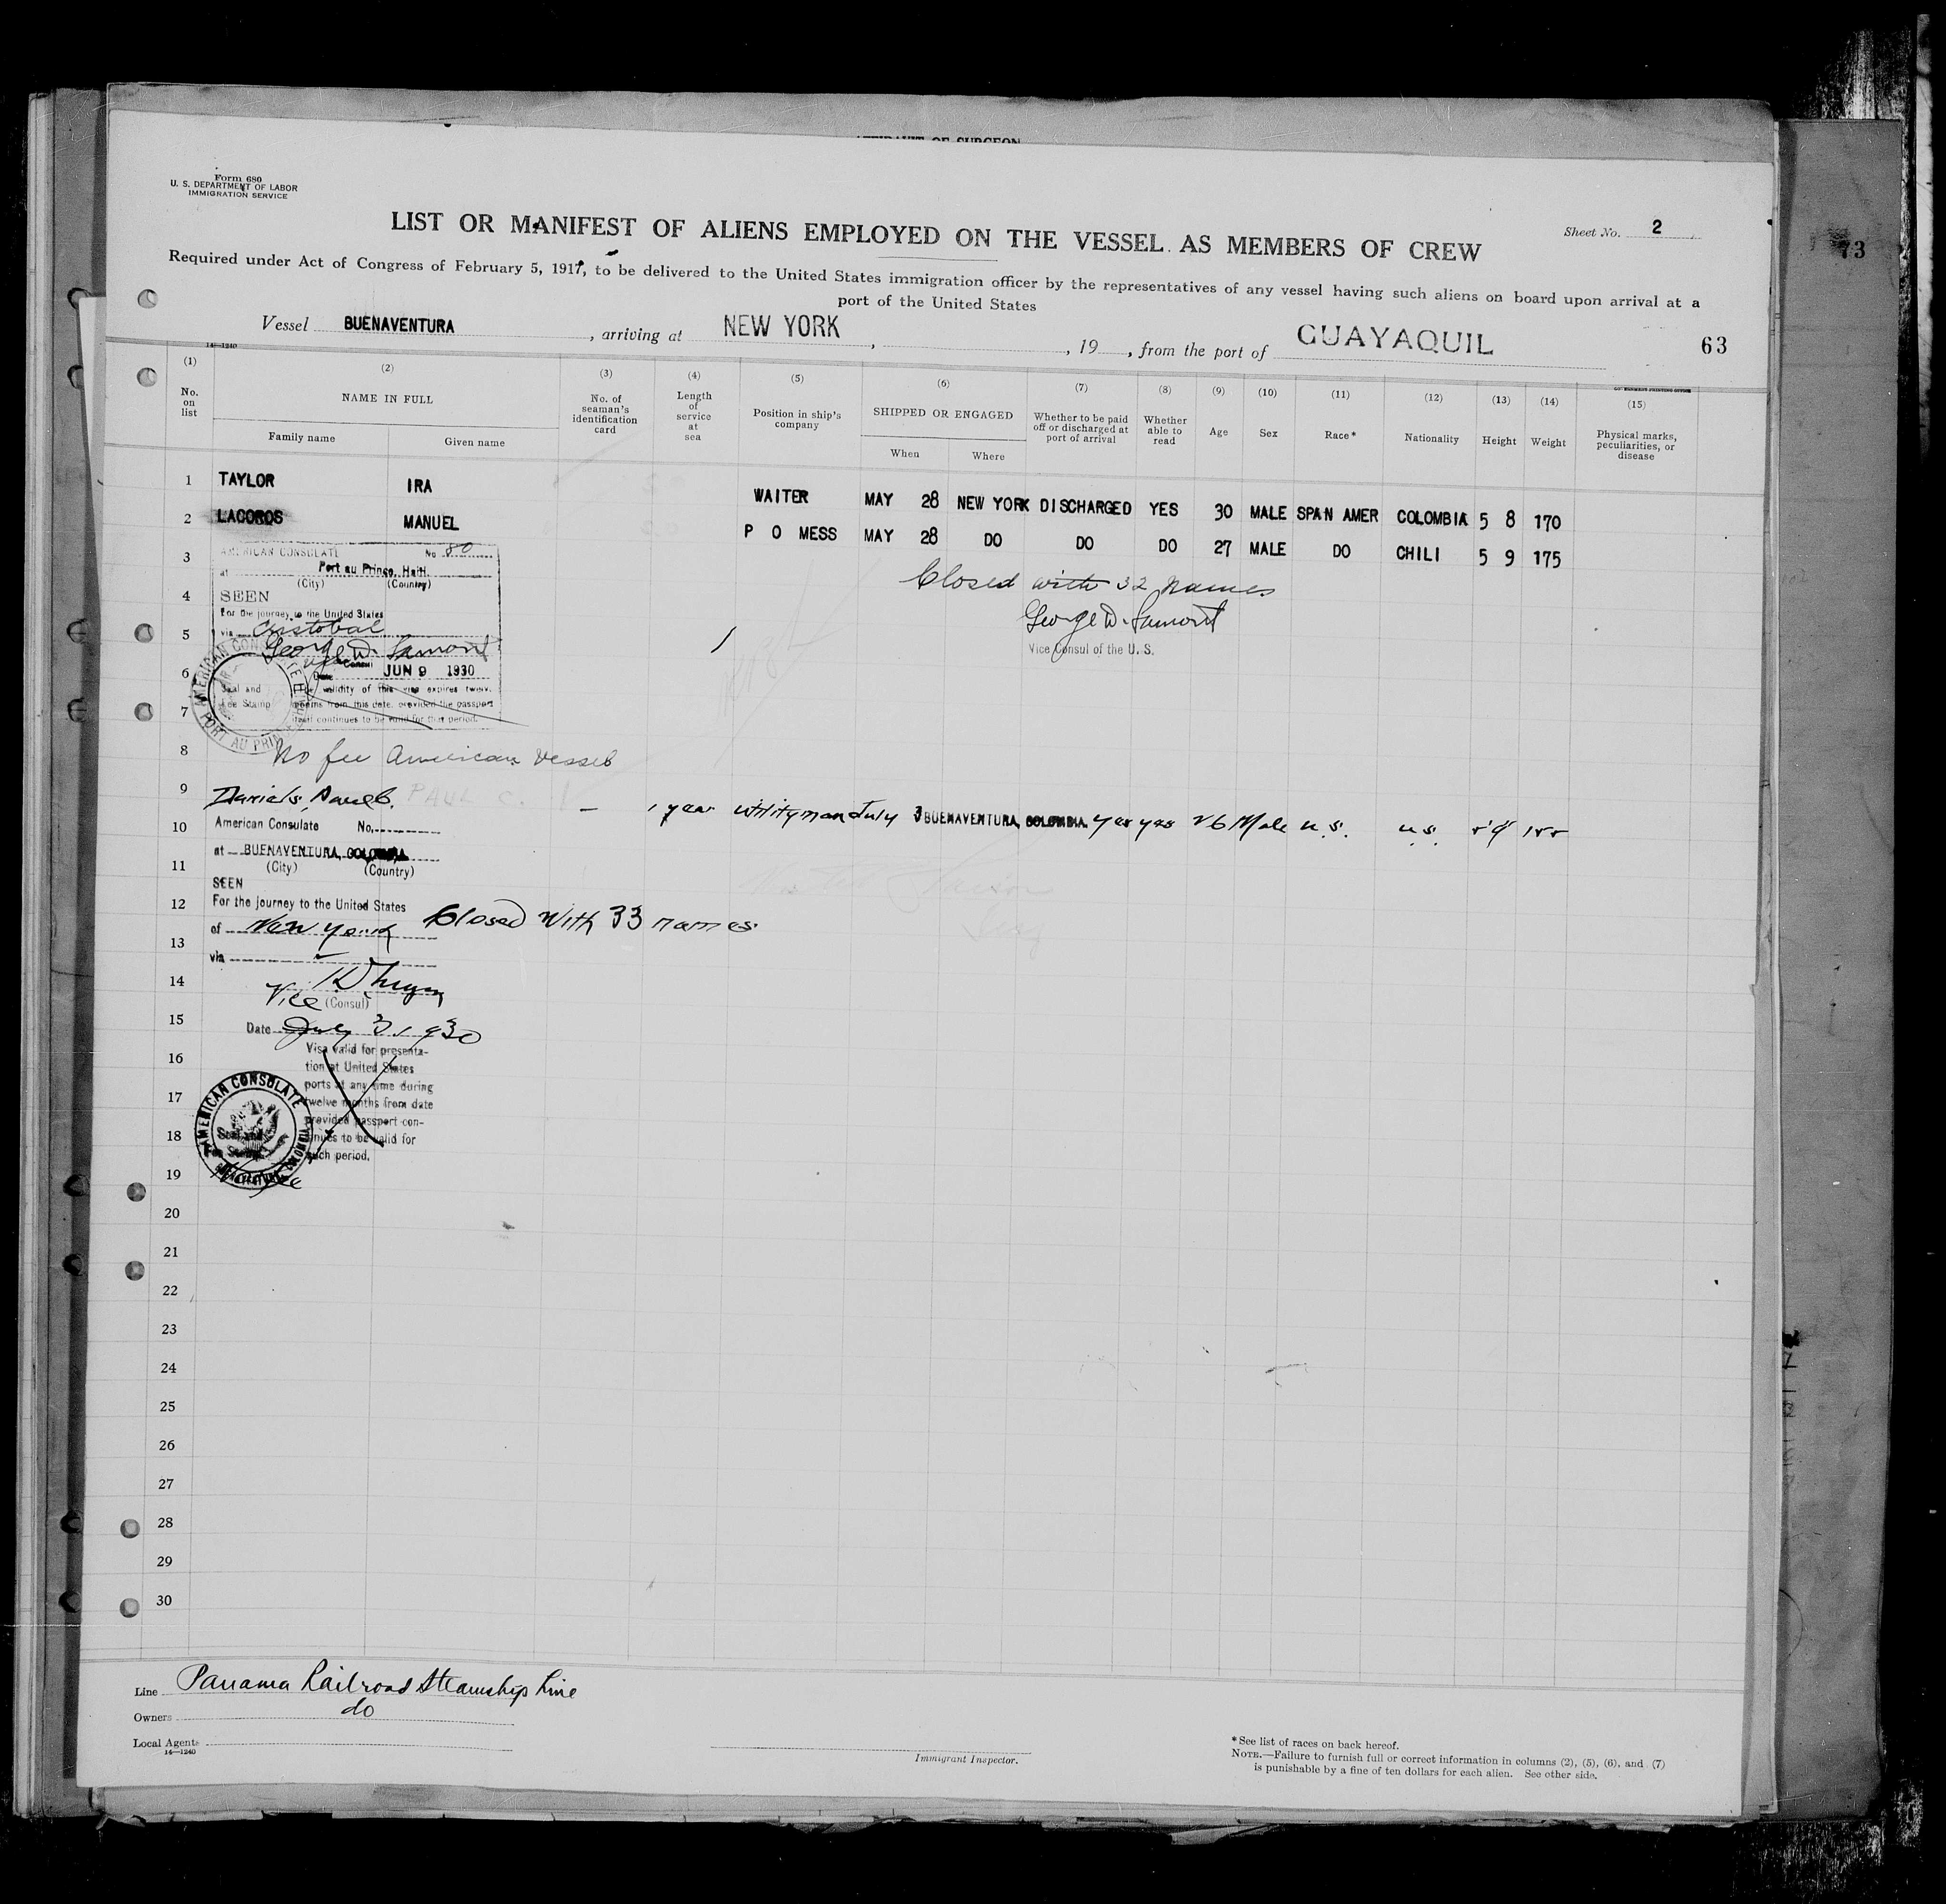 AFFIDAVIT OF SURGEON
Form 680
U. S. DEPARTMENT OF LABOR
IMMIGRATION SERVICE
LIST OR MANIFEST OF ALIENS EMPLOYED ON THE VESSEL AS MEMBERS OF CREW
Sheet No. 2
73
Required under Act of Congress of February 5, 1917, to be delivered to the United States immigration officer by the representatives of any vessel having such aliens on board upon arrival at a
port of the United States
Vessel BUENAVENTURA, arriving at NEW YORK, , 19 , from the port of GUAYAQUIL 63
14—1240
GOVERNMENT PRINTING OFFICE
(1) (2) (3) (4) (5) (6) (7) (8) (9) (10) (11) (12) (13) (14) (15)
No. on list NAME IN FULL No. of seaman's identification card Length of service at sea Position in ship's company SHIPPED OR ENGAGED Whether to be paid off or discharged at port of arrival Whether able to read Age Sex Race* Nationality Height Weight Physical marks, peculiarities, or disease
Family name Given name When Where
1 TAYLOR IRA WAITER MAY 28 NEW YORK DISCHARGED YES 30 MALE SPAN AMER COLOMBIA 5 8 170
2 LACOROS MANUEL P O MESS MAY 28 DO DO DO 27 MALE DO CHILI 5 9 175
3
AMERICAN CONSULATE No 80
at Port au Prince, Haiti.
(City) (Country)
Closed with 32 names
4
SEEN
George D. Lamont
For the journey to the United States
5
via Cristobal
Vice Consul of the U. S.
George D. Lamont
Vice Consul
6
Date JUN 9 1930
Seal and Fee Stamp
The validity of this visa expires twelve
months from this date, provided the passport
7
itself continues to be valid for that period.
AMERICAN CONSULATE PORT AU PRINCE
8
No fee American Vessel
9 Daniels, Paul C. PAUL C. — 1 year utilityman July 3 BUENAVENTURA, COLOMBIA. yes yes 26 Male U.S. U.S. 5'9 155
10
American Consulate No.
at BUENAVENTURA, COLOMBIA
11
(City) (Country)
SEEN
12
For the journey to the United States
of New York Closed with 33 names
13
via
14
Vice (Consul)
15
Date July 3, 1930
16
Visa valid for presenta-
tion at United States
ports at any time during
17
twelve months from date
provided passport con-
18
tinues to be valid for
such period.
AMERICAN CONSULATE BUENAVENTURA COLOMBIA
Seal and
Fee Stamp
No fee
19
20
21
22
23
24
25
26
27
28
29
30
Line Panama Railroad Steamship Line
Owners do
Local Agents
14—1240
Immigrant Inspector.
*See list of races on back hereof.
NOTE.—Failure to furnish full or correct information in columns (2), (5), (6), and (7)
is punishable by a fine of ten dollars for each alien. See other side.